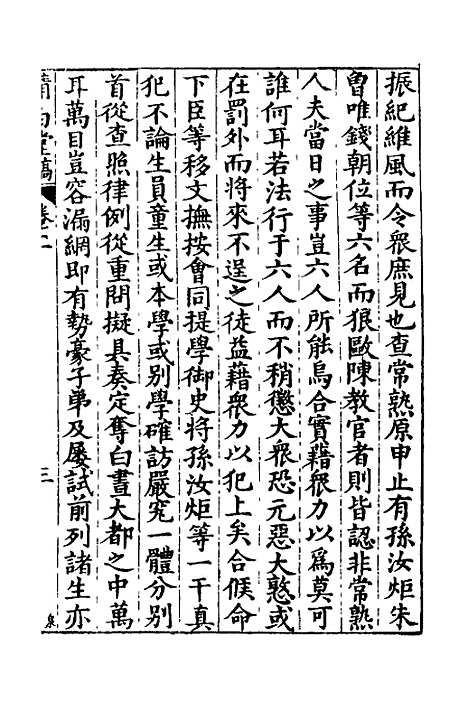 振紀維風而令眾庶見也查常熟原申止有孫汝炬朱
曾唯錢朝位等六名而狠毆陳教官者則皆認非常熟
人夫當日之事豈六人所能烏合實藉眾力以爲莫可
誰何耳若法行于六人而不稍懲大眾恐元惡大憝或
在罰外而將來不逞之徒益藉眾力以犯上矣合候命
下臣等移文撫按會同提學御史將孫汝炬等一干真
犯不論生員童生或本學或別學確訪嚴究一體分別
首從查照律例從重問擬具奏定奪白晝大都之中萬
耳萬目豈容漏網即有勢豪子弟及屢試前列諸生亦
堂稿
卷二
三